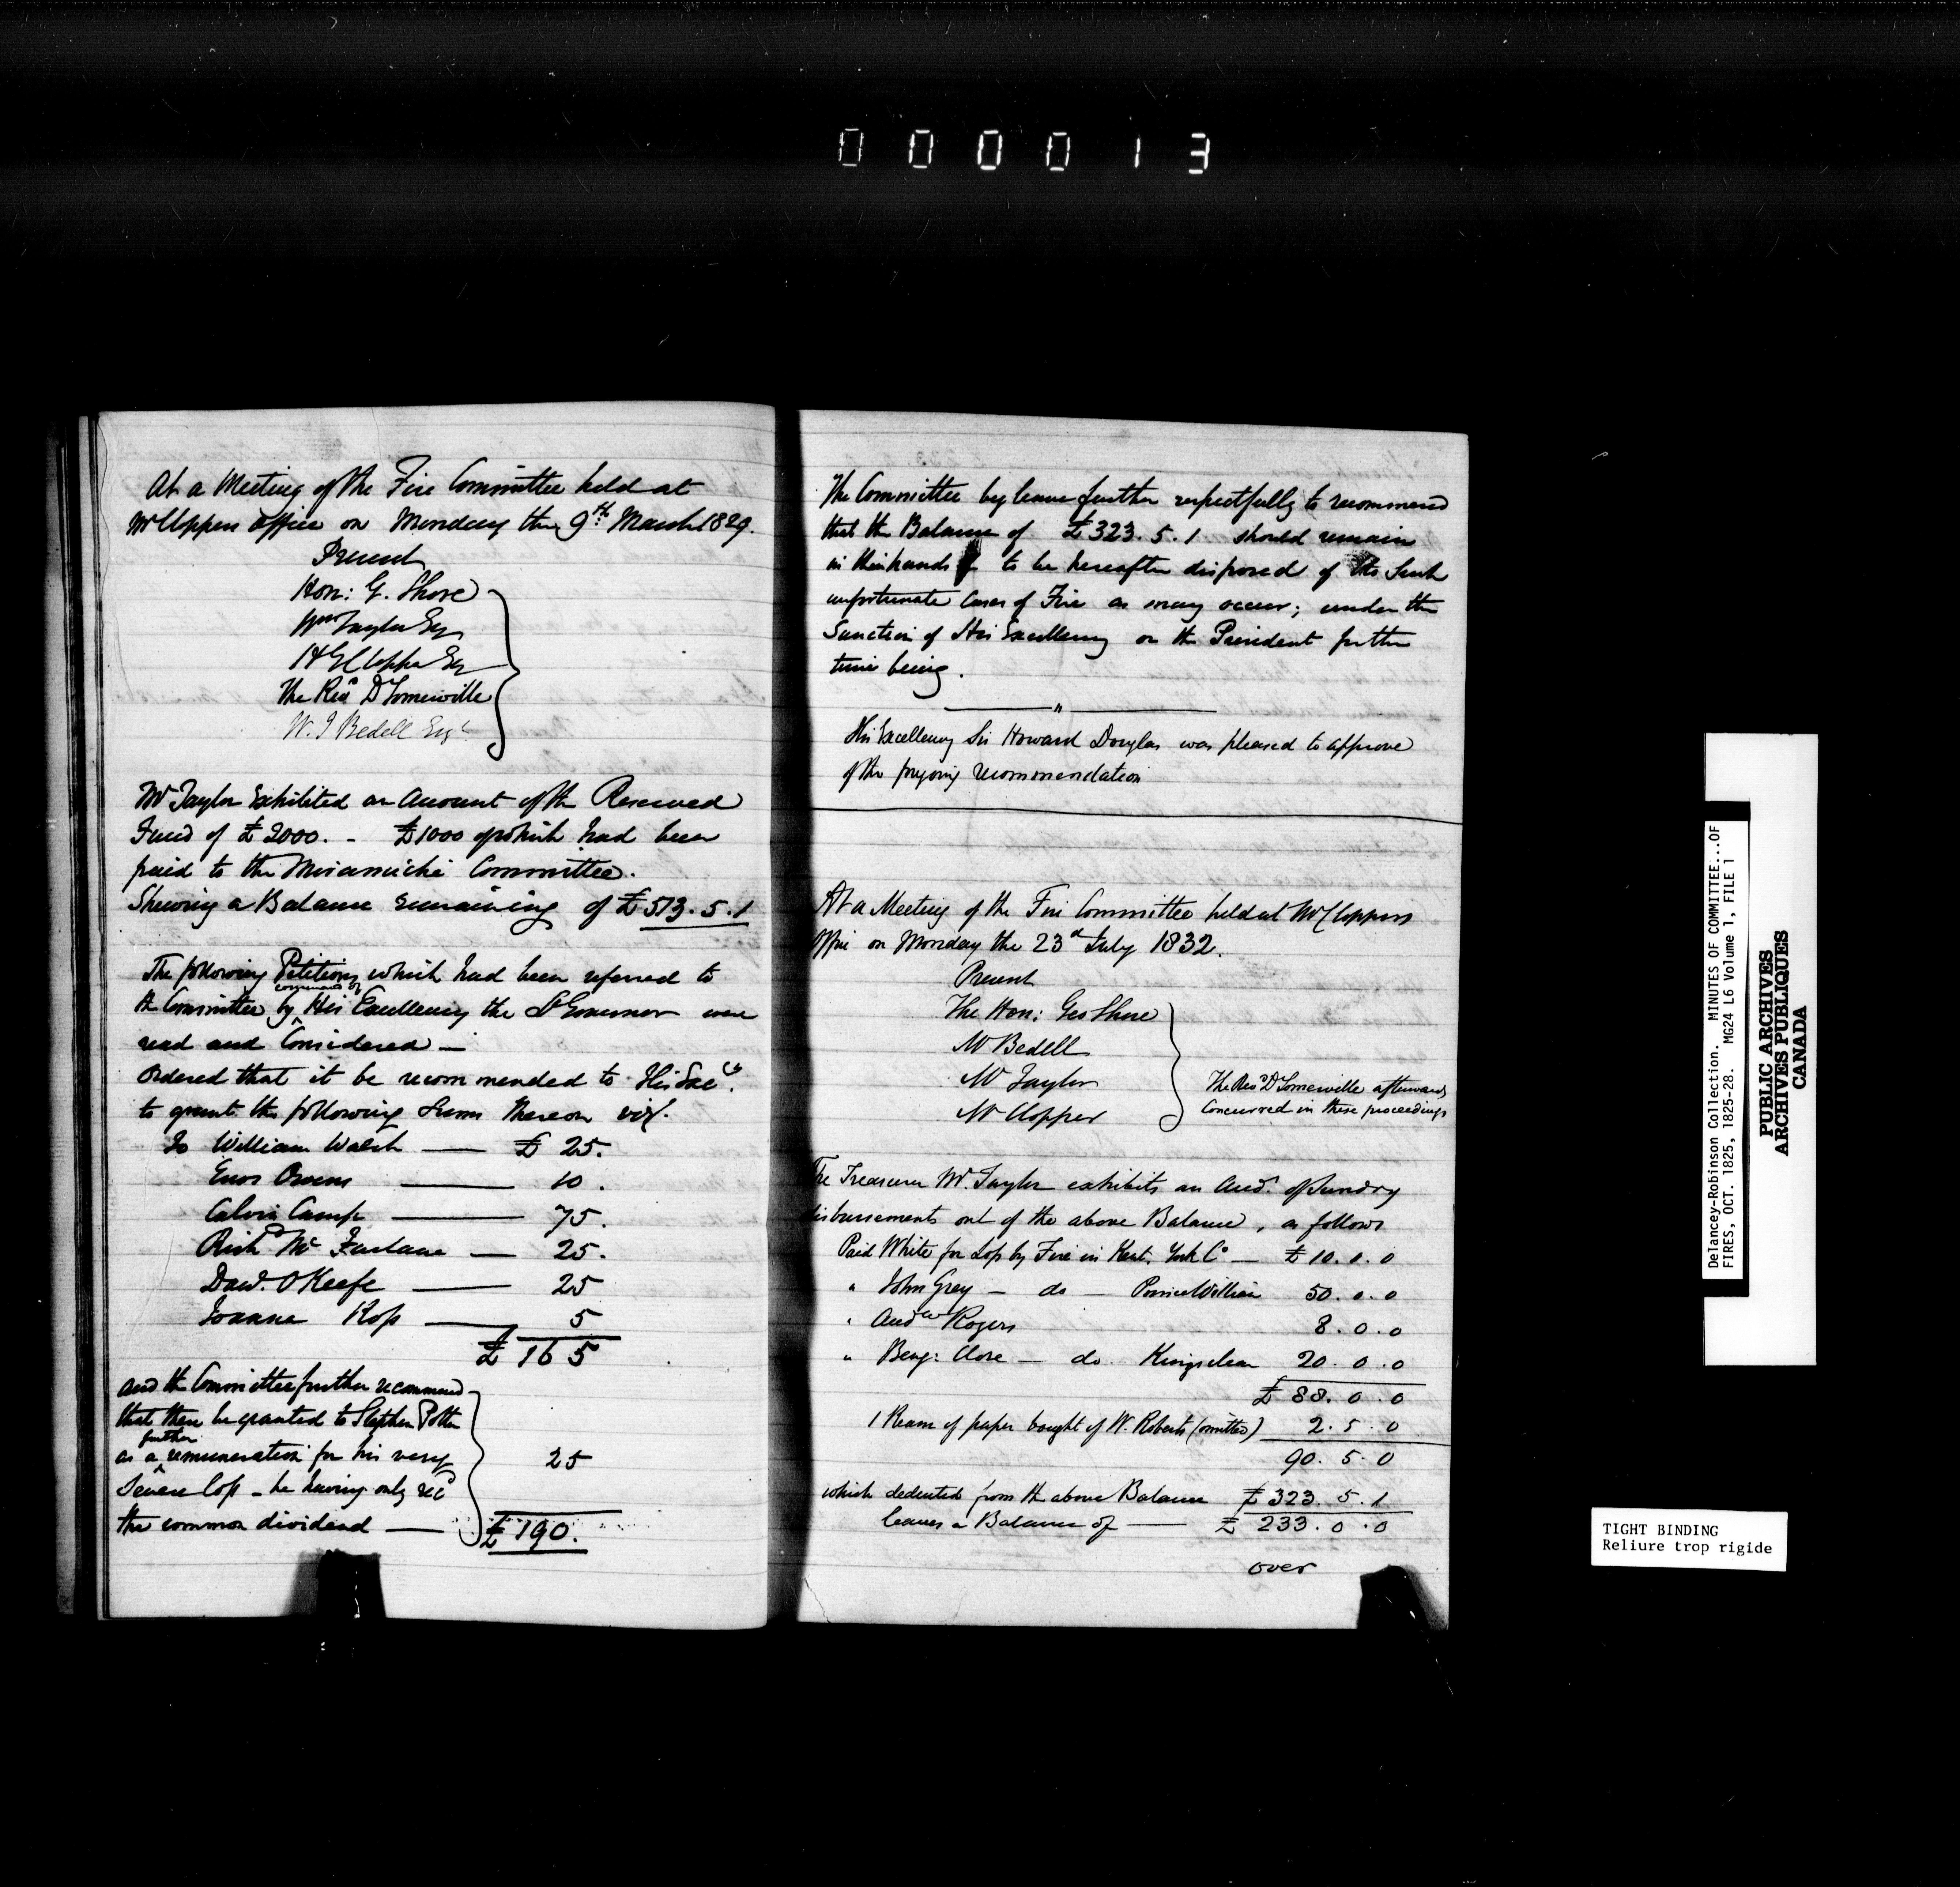 000013
At a Meeting of the Fire Committee held at
Mr Cloppers office on Monday the 9th March 1829.
Present
Hon: G. Shore
Wm Taylor Esq
H G Clopper Esq
The Revd Dr Somerville
W. J Bedell Esqr
Mr Taylor Exhibited an Account of the Reserved
Fund of £2000. - £1000 of which had been
paid to the Miramichi Committee.
Shewing a Balance remaining of £513.5.1
The following Petitions which had been referred to
the Committee by command of His Excellency the Lt Governor were
read and Considered —
Ordered that it be recommended to His Excy.
to grant the following Sums thereon viz.
To William Walsh — £ 25.
Enos Owens — 10.
Calvin Camp — 75.
Richd Mc Farlane — 25.
Davd. O Keefe — 25
Joanna Ross — 5
£ 165
and the Committee further recommend
that there be granted to Stephen Potter
as a further remuneration for his very
Severe loss - he having only recd
the common dividend — 25
£ 190.
The Committee beg leave further respectfully to recommend
that the Balance of £323.5.1 should remain
in their hands to be hereafter disposed of to Such
unfortunate Cases of Fire as may occur; under the
Sanction of His Excellency or the President for the
time being.
"
His Excellency Sir Howard Douglas was pleased to approve
of the foregoing recommendation
At a Meeting of the Fire Committee held at Mr Cloppers
Office on Monday the 23d July 1832.
Present
The Hon: Geo Shore
Mr Bedell
Mr Taylor
Mr Clopper
The Revd Dr Somerville afterwards
Concurred in these proceedings
The Treasurer Mr. Taylor exhibits an Acct. of Sundry
disbursements out of the above Balance, as follows
Paid White for Loss by Fire in Kent. York Co — £ 10.0.0
" John Grey — do — Prince William 50.0.0
" Andw Rogers 8.0.0
" Benj: Clore — do. Kingsclear 20.0.0
£ 88.0.0
1 Ream of paper bought of W. Roberts (omitted) 2.5.0
90.5.0
which deducted from the above Balance £ 323.5.1
leaves a Balance of — £ 233.0.0
over
Delancey-Robinson Collection. MINUTES OF COMMITTEE...OF
FIRES, OCT. 1825, 1825-28. MG24 L6 Volume 1, FILE 1
PUBLIC ARCHIVES
ARCHIVES PUBLIQUES
CANADA
TIGHT BINDING
Reliure trop rigide